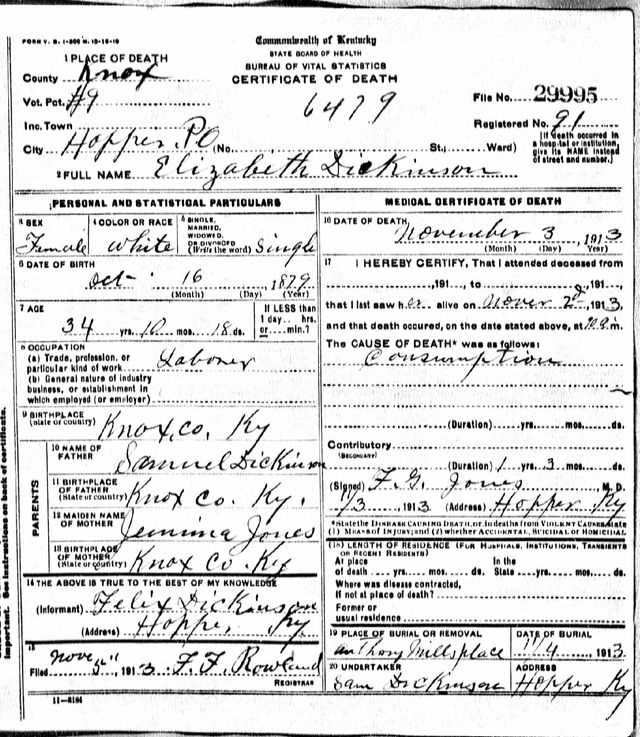 FORM V. S. 1-300 M. 10-16-19
Commonwealth of Kentucky
STATE BOARD OF HEALTH
BUREAU OF VITAL STATISTICS
CERTIFICATE OF DEATH
1 PLACE OF DEATH
County Knox
Vot. Pct. #9
Inc. Town
City Hopper, PO (No. St.; Ward)
6479
File No. 29995
Registered No. 91
[If death occurred in a hospital or institution, give its NAME instead of street and number.]
2 FULL NAME Elizabeth Dickinson
PERSONAL AND STATISTICAL PARTICULARS
3 SEX Female
4 COLOR OR RACE White
5 SINGLE, MARRIED, WIDOWED, OR DIVORCED (Write the word) Single
6 DATE OF BIRTH
Oct- 16 1879
(Month) (Day) (Year)
7 AGE
34 yrs. 10 mos. 18 ds.
If LESS than 1 day.... hrs. or.... min.?
8 OCCUPATION
(a) Trade, profession, or particular kind of work Laborer
(b) General nature of industry business, or establishment in which employed (or employer)
9 BIRTHPLACE (State or country) Knox, co. Ky
PARENTS
10 NAME OF FATHER Samuel Dickinson
11 BIRTHPLACE OF FATHER (State or country) Knox co. Ky.
12 MAIDEN NAME OF MOTHER Jemima Jones
13 BIRTHPLACE OF MOTHER (State or country) Knox Co. Ky
14 THE ABOVE IS TRUE TO THE BEST OF MY KNOWLEDGE
(Informant) Felix Dickinson
(Address) Hopper, Ky
15
Filed Nov 5" 1913 F. F. Rowland
REGISTRAR
11-3184
MEDICAL CERTIFICATE OF DEATH
16 DATE OF DEATH November 3 1913
(Month) (Day) (Year)
17 I HEREBY CERTIFY, That I attended deceased from
191 , to 191 ,
that I last saw her alive on Nover 2d 1913,
and that death occured, on the date stated above, at m.
The CAUSE OF DEATH* was as follows:
Consumption
(Duration) yrs. mos. ds.
Contributory
(SECONDARY)
(Duration) 1 yrs. 3 mos. ds.
(Signed) F. G. Jones M. D.
1/3 1913 (Address) Hopper Ky
*State the DISEASE CAUSING DEATH, or, in deaths from VIOLENT CAUSES, state
(1) MEANS OF INJURY; and (2) whether ACCIDENTAL, SUICIDAL or HOMICIDAL
(18) LENGTH OF RESIDENCE (FOR HOSPITALS, INSTITUTIONS, TRANSIENTS OR RECENT RESIDENTS)
At place of death yrs. mos. ds. In the State yrs. mos. ds.
Where was disease contracted,
if not at place of death?
Former or
usual residence
19 PLACE OF BURIAL OR REMOVAL
Anthony Mills place
DATE OF BURIAL
11/4 1913
20 UNDERTAKER
Sam Dickinson
ADDRESS
Hopper Ky
important. See instructions on back of certificate.